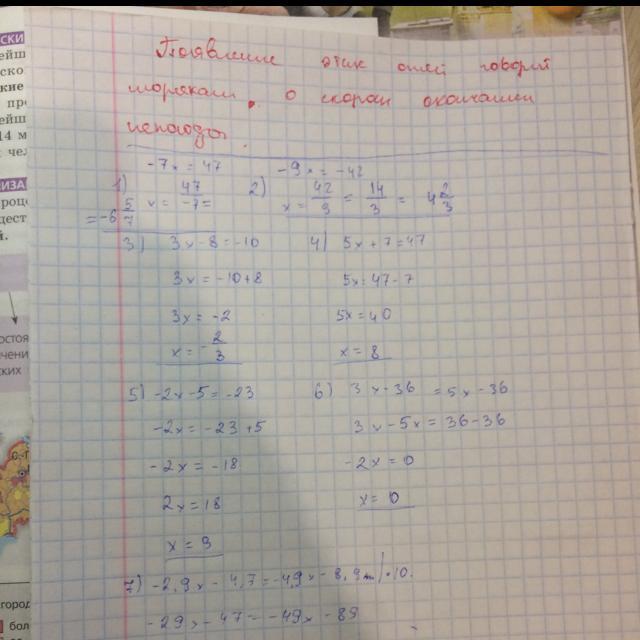 СКИ
ИЗА
Появление этих огней говорит
морякам, о скором окончании
непогоды.
1) -7x = 47
x = 47/-7 =
= -6 5/7
2) -9x = -42
x = 42/9 = 14/3 = 4 2/3
3) 3x - 8 = -10
3x = -10 + 8
3x = -2
x = -2/3
4) 5x + 7 = 47
5x = 47 - 7
5x = 40
x = 8
5) -2x - 5 = -23
-2x = -23 + 5
-2x = -18
2x = 18
x = 9
6) 3x - 36 = 5x - 36
3x - 5x = 36 - 36
-2x = 0
x = 0
7) -2,9x - 4,7 = -4,9x - 8,9 | · 10
-29x - 47 = -49x - 89